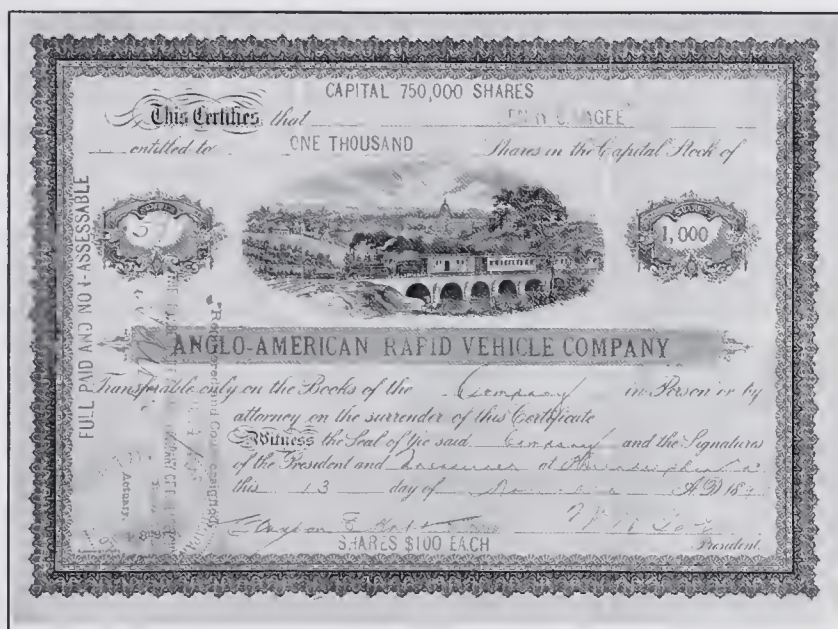 CAPITAL 750,000 SHARES
This Certifies that
entitled to ONE THOUSAND Shares in the Capital Stock of
SHARES
1,000
FULL PAID AND NON-ASSESSABLE
ANGLO-AMERICAN RAPID VEHICLE COMPANY
Transferable only on the Books of the Company in Person or by
attorney on the surrender of this Certificate
Witness the Seal of the said Company and the Signatures
of the President and Treasurer at Philadelphia
this 13 day of A.D. 18
SHARES $100 EACH President.
Registered and Countersigned
Actuary.